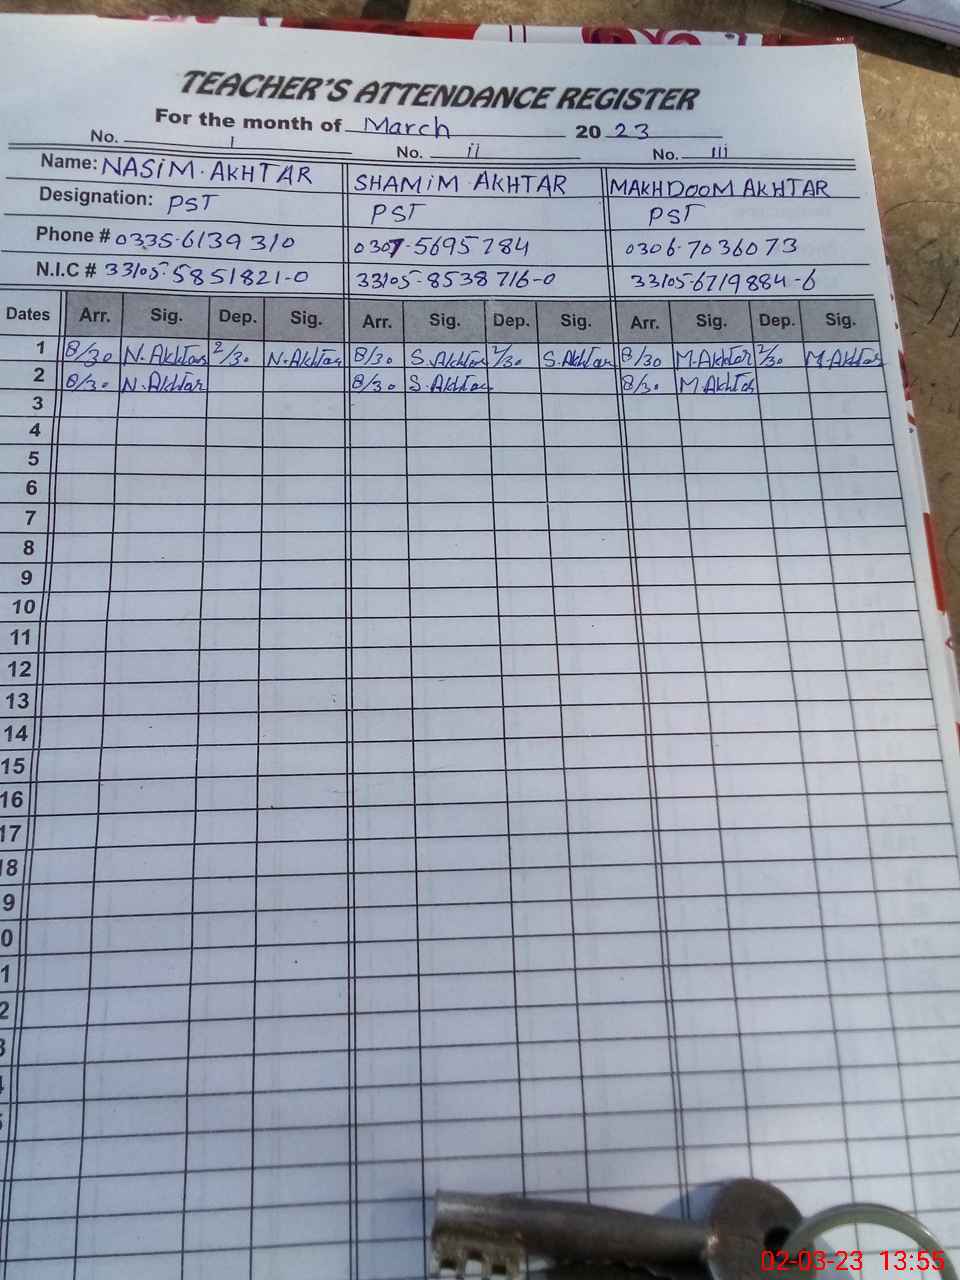 TEACHER'S ATTENDANCE REGISTER
For the month of March 2023
No. i No. ii No. iii
Name: NASIM AKHTAR SHAMIM AKHTAR MAKHDOOM AKHTAR
Designation: PST PST PST
Phone # 0335-6139310 0307-5695784 0306-7036073
N.I.C # 33105-5851821-0 33105-8538716-0 33105-6719884-6
Dates Arr. Sig. Dep. Sig. Arr. Sig. Dep. Sig. Arr. Sig. Dep. Sig.
1 8/30 N.Akhtar 2/30 N.Akhtar 8/30 S.Akhtar 2/30 S.Akhtar 8/30 M.Akhtar 2/30 M.Akhtar
2 8/30 N.Akhtar 8/30 S.Akhtar 8/30 M.Akhtar
3
4
5
6
7
8
9
10
11
12
13
14
15
16
17
18
9
0
1
2
3
02-03-23 13:55